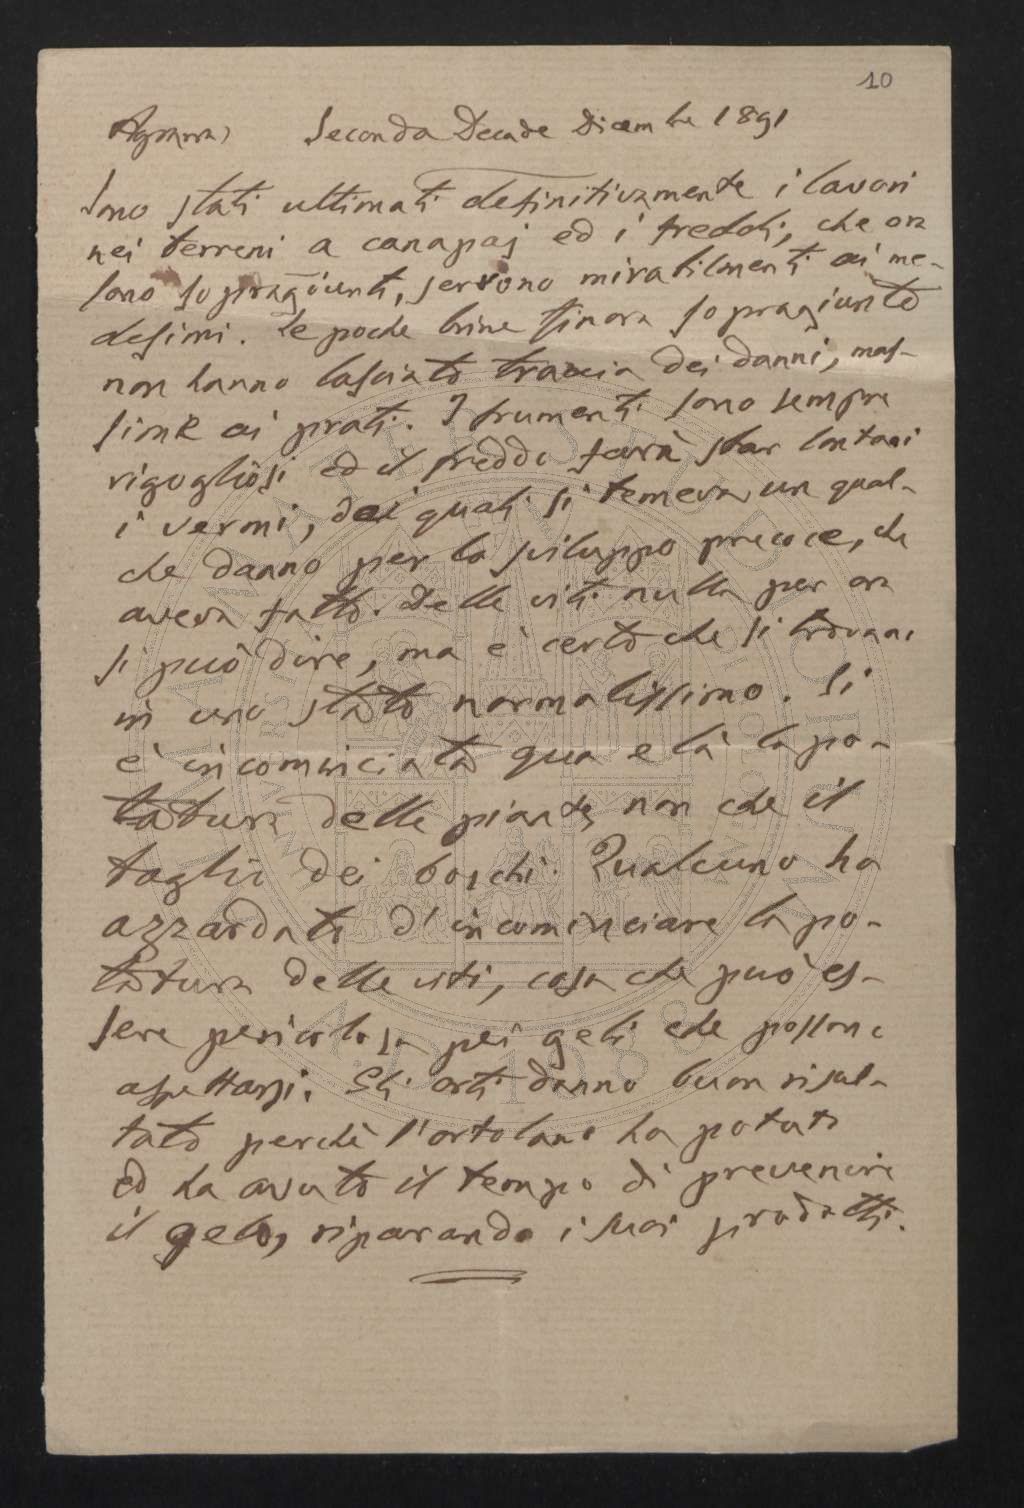 10
Agraria, Seconda Decade Dicembre 1891
Sono stati ultimati definitivamente i lavori
nei terreni a canapaj ed i freddi, che ora
sono sopragiunti, servono mirabilmenti ai me-
desimi. Le poche brine finora sopragiunte
non hanno lasciato traccia dei danni, mas-
sime ai prati. I frumenti sono sempre
rigogliosi ed il freddo farà star lontani
i vermi, dei quali si temeva un qual-
che danno per lo sviluppo precoce, che
aveva fatto. Delle viti nulla per ora
si può dire, ma è certo che si trovano
in uno stato normalissimo. Si
è incominciata qua e là la po-
tatura delle piante, non che il
taglio dei boschi. Qualcuno ha
azzardato d'incominciare la po-
tatura delle viti, cosa che può es-
sere pericolosa pei geli che possono
aspettarsi. Gli orti danno buon risul-
tato perchè l'ortolano ha potuto
ed ha avuto il tempo di prevenire
il gelo, riparando i suoi prodotti.
ALMA MATER STUDIORUM
A.D. 1088